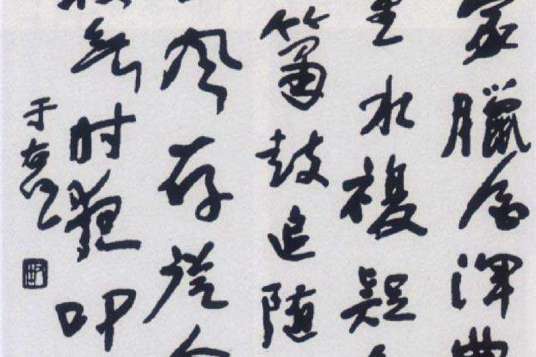 家臘酒渾豐
重水複疑
簫鼓追随
风存從今
杖無时夜叩
于右任